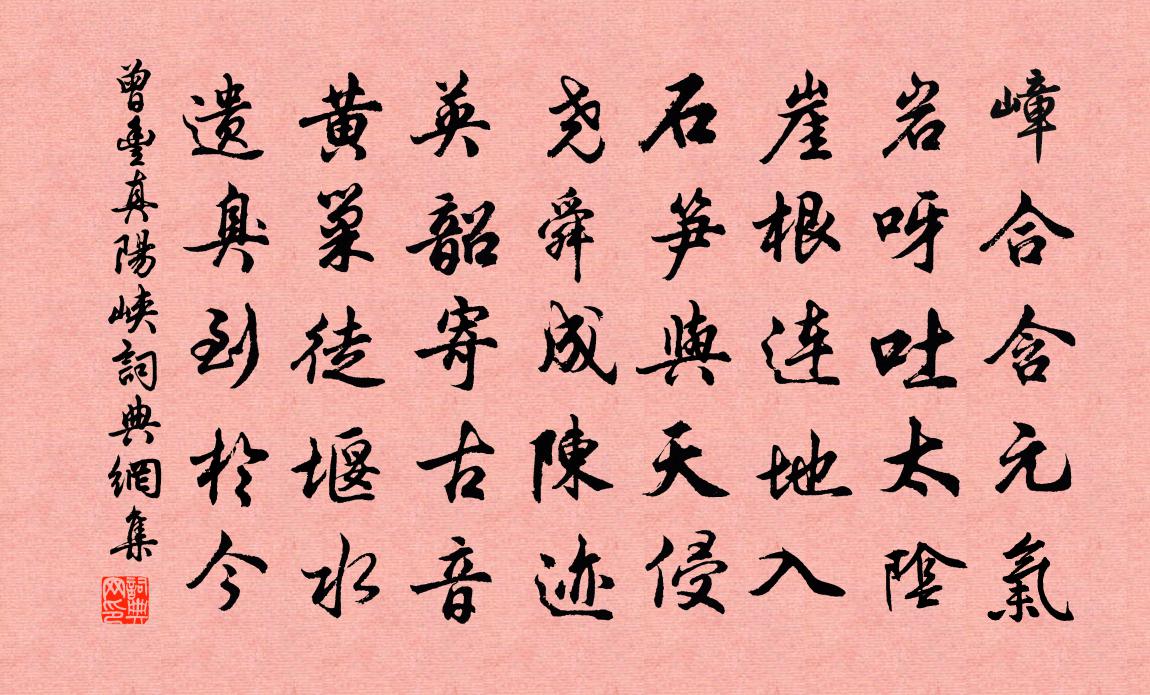 嶂合含元氣
岩呀吐太陰
崖根連地入
石笋與天侵
尭舜成陳迹
英韶寄古音
黄巢徒堰水
遺臭到於今
曾豊真陽峽詞典網集
詞典网印